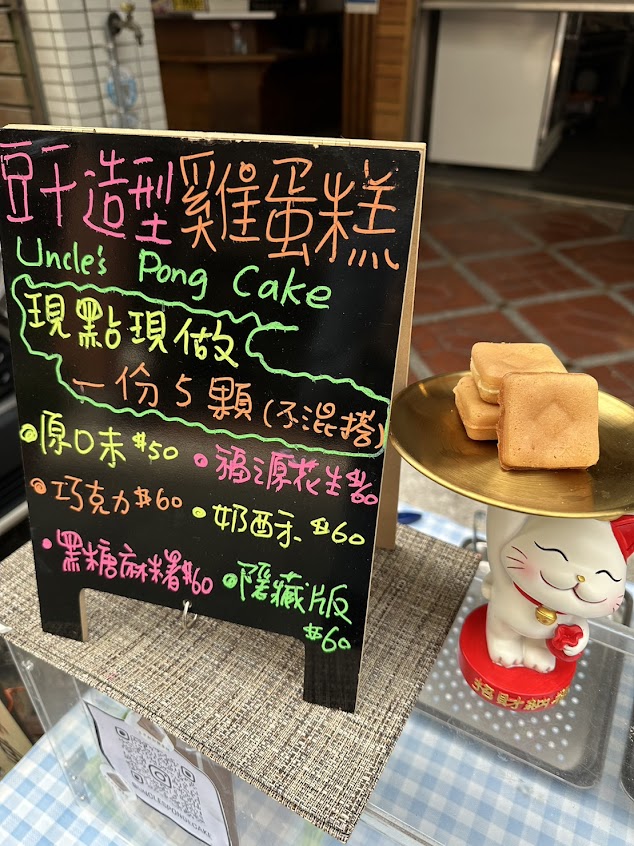 豆干造型雞蛋糕
Uncle's Pong Cake
現點現做
一份5顆(不混搭)
原口味 $50
福源花生$60
巧克力$60
奶酥 $60
黑糖麻糬$60
隱藏版
$60
招財納福